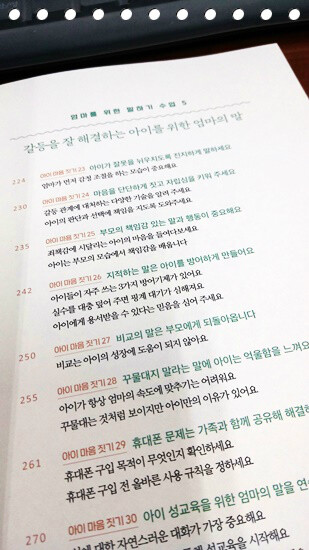 엄마를 위한 말하기 수업 5
갈등을 잘 해결하는 아이를 위한 엄마의 말
224 아이 마음 짓기 23 아이가 잘못을 뉘우치도록 진지하게 말하세요
엄마가 먼저 감정 조절을 하는 모습이 중요해요
230 아이 마음 짓기 24 마음을 단단하게 짓고 자립심을 키워 주세요
갈등 관계에 대처하는 다양한 기술을 알려 주세요
아이의 판단과 선택에 책임을 지도록 도와주세요
235 아이 마음 짓기 25 부모의 책임감 있는 말과 행동이 중요해요
죄책감에 시달리는 아이의 마음을 들여다보세요
아이는 부모의 모습에서 책임감을 배웁니다
242 아이 마음 짓기 26 지적하는 말은 아이를 방어하게 만들어요
아이들이 자주 쓰는 3가지 방어기제가 있어요
실수를 대충 덮어 주면 핑계 대기가 심해져요
아이에게 용서받을 수 있다는 믿음을 심어 주세요
250 아이 마음 짓기 27 비교의 말은 부모에게 되돌아옵니다
비교는 아이의 성장에 도움이 되지 않아요
255 아이 마음 짓기 28 꾸물대지 말라는 말에 아이는 억울함을 느껴요
아이가 항상 엄마의 속도에 맞추기는 어려워요
꾸물대는 것처럼 보이지만 아이만의 이유가 있어요
261 아이 마음 짓기 29 휴대폰 문제는 가족과 함께 공유해 해결
휴대폰 구입 목적이 무엇인지 확인하세요
휴대폰 구입 전 올바른 사용 규칙을 정하세요
270 아이 마음 짓기 30 아이 성교육을 위한 엄마의 말을
대한 자연스러운 대화가 가장 중요해요
성교육을 시작해요